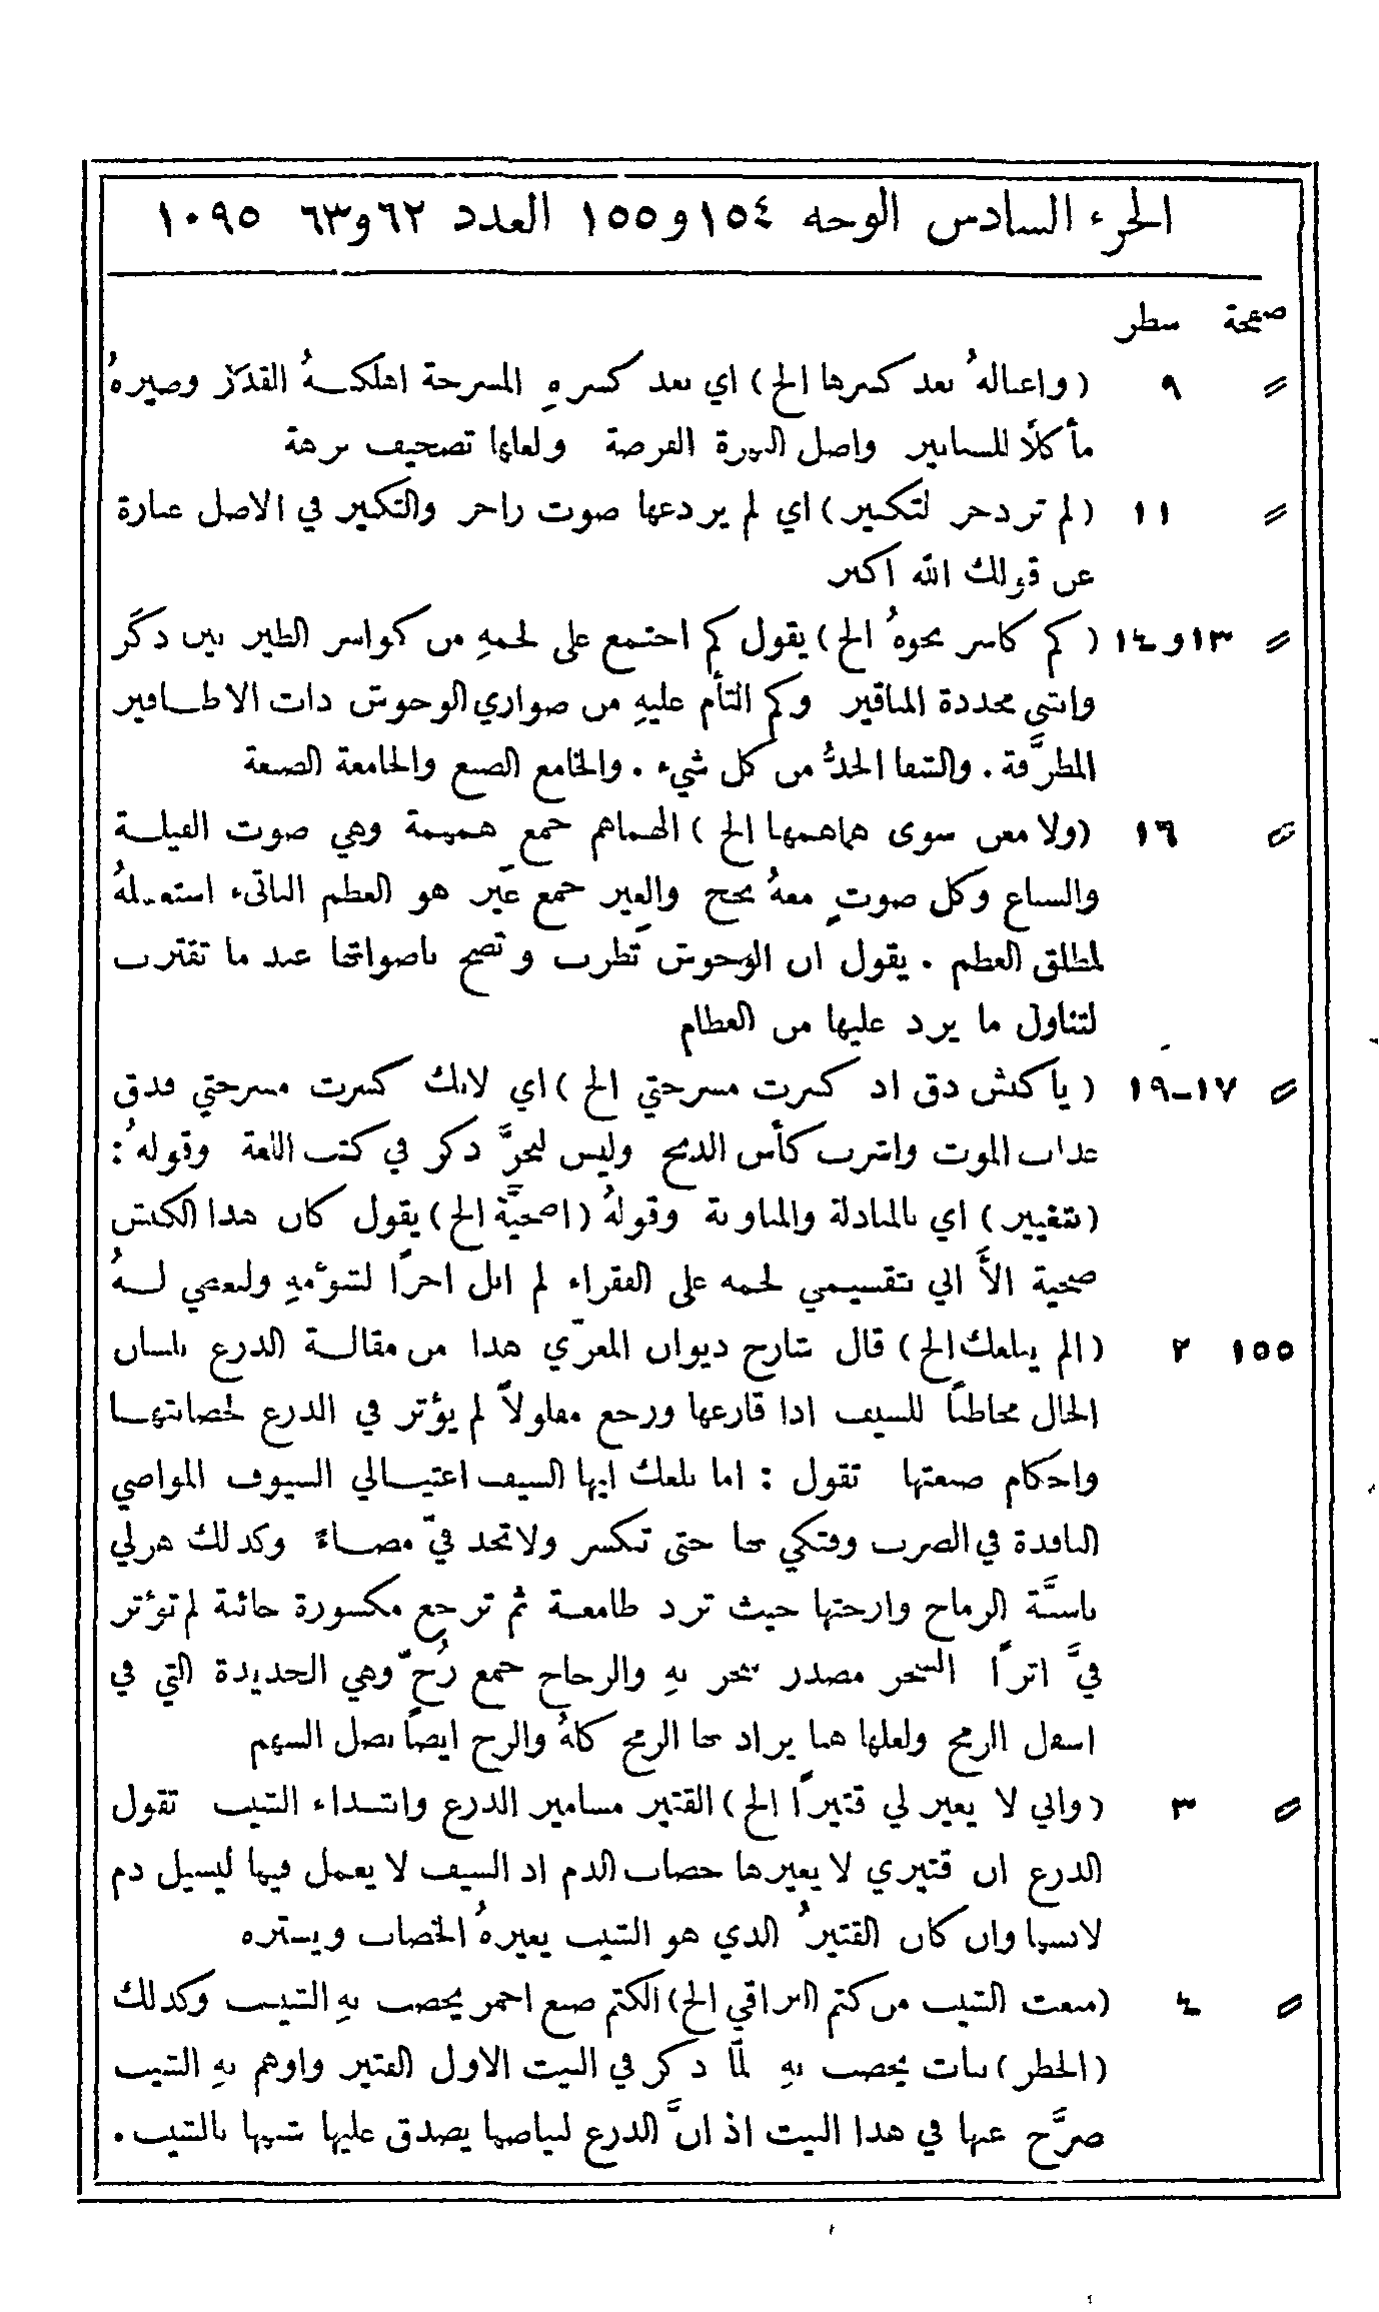 الجزء السادس الوجه ١٥٤ و١٥٥ العدد ٦٢ و٦٣ ١٠٩٥
صفحة سطر
〃 ٩ (واغتاله بعد كسرها الخ) اي بعد كسرهِ المسرجة اهلكـهُ القدَر وصيرهُ
مأكلًا للسنانير واصل النهزة الفرصة ولعلها تصحيف برهة
〃 ١١ (لم تزدجر لتكبير) اي لم يردعها صوت زاجر والتكبير في الاصل عبارة
عن قولك الله اكبر
〃 ١٣و١٤ (كم كاسر نحوهُ الخ) يقول كم اجتمع على لحمهِ من كواسر الطير بين ذكَر
وانثى محددة المناقير وكم التأم عليهِ من ضواري الوحوش ذات الاظـافير
المطرَّفة. والشفا الحدُّ من كل شيء. والخامع الضبع والخامعة الضبعة
〃 ١٦ (ولا مغن سوى هماهمها الخ) الهماهم جمع همهمة وهي صوت الفيلـة
والسباع وكل صوتٍ معهُ بحح والعِير جمع عَير هو العظم الناتىء استعملهُ
لمطلق العظم. يقول ان الوحوش تطرب وتضج باصواتها عند ما تقترب
لتناول ما يرد عليها من العظام
〃 ١٧-١٩ (يا كبش ذق اذ كسرت مسرجتي الخ) اي لانك كسرت مسرجتي فذق
عذاب الموت واشرب كأس الذبح وليس ذكر في كتب اللغة وقوله:
(بتغيير) اي بالمبادلة والمناوبة وقولهُ (اضحيَّة الخ) يقول كان هذا الكبش
ضحية الَّا اني بتقسيمي لحمه على الفقراء لم انل اجرًا لشؤمهِ ولبغضي لـهُ
١٥٥ ٢ (الم يبلغك الخ) قال شارح ديوان المعرّي هذا من مقالـة الدرع بلسان
الحال مخاطبًا للسيف اذا قارعها ورجع مفلولًا لم يؤثر في الدرع لحصانتهـا
واحكام صنعتها تقول: اما بلغك ايها السيف اغتيـالي السيوف المواضي
النافذة في الضرب وفتكي بها حتى تنكسر ولا تجد فيّ مضـاءً وكذلك هزلي
باسنَّة الرماح وازجتها حيث ترد طامعـة ثم ترجع مكسورة خائبة لم تؤثر
فيَّ اثرًا السخر مصدر سخر بهِ والزجاج جمع زُجّ وهي الحديدة التي في
اسفل الرمح ولعلها هنا يراد بها الرمح كلهُ والزج ايضًا نصل السهم
〃 ٣ (واني لا يغير لي قتيرًا الخ) القتير مسامير الدرع وابتـداء الشيب تقول
الدرع ان قتيري لا يغيرها خضاب الدم اذ السيف لا يعمل فيها ليسيل دم
لابسها وان كان القتيرُ الذي هو الشيب يغيرهُ الخضاب ويستره
〃 ٤ (منعت الشيب من كتم التراقي الخ) الكتم صبغ احمر يخضب بهِ الشيب وكذلك
(الخطر) نبات يخضب بهِ لمَّا ذكر في البيت الاول القتير واوهم بهِ الشيب
صرَّح عنها في هذا البيت اذ انَّ الدرع لبياضها يصدق عليها شبهها بالشيب.